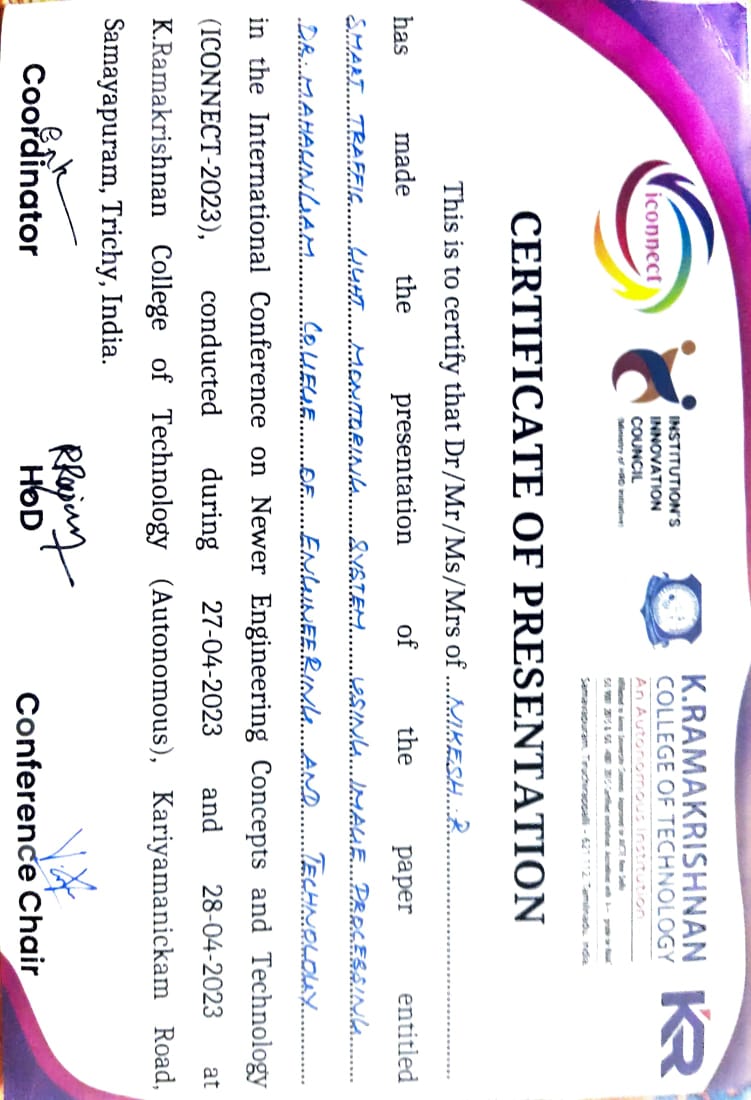 iconnect
INSTITUTION'S
INNOVATION
COUNCIL
(Ministry of HRD Initiative)
K.RAMAKRISHNAN
COLLEGE OF TECHNOLOGY
An Autonomous Institution
Samayapuram, Tiruchirappalli - 621 112, Tamilnadu, India.
KR
CERTIFICATE OF PRESENTATION
This is to certify that Dr/Mr/Ms/Mrs of ...NIKESH. R...
has made the presentation of the paper entitled
SMART TRAFFIC LIGHT MONITORING SYSTEM USING IMAGE PROCESSING
DR. MAHALINGAM COLLEGE OF ENGINEERING AND TECHNOLOGY
in the International Conference on Newer Engineering Concepts and Technology
(ICONNECT-2023), conducted during 27-04-2023 and 28-04-2023 at
K.Ramakrishnan College of Technology (Autonomous), Kariyamanickam Road,
Samayapuram, Trichy, India.
Coordinator HoD Conference Chair